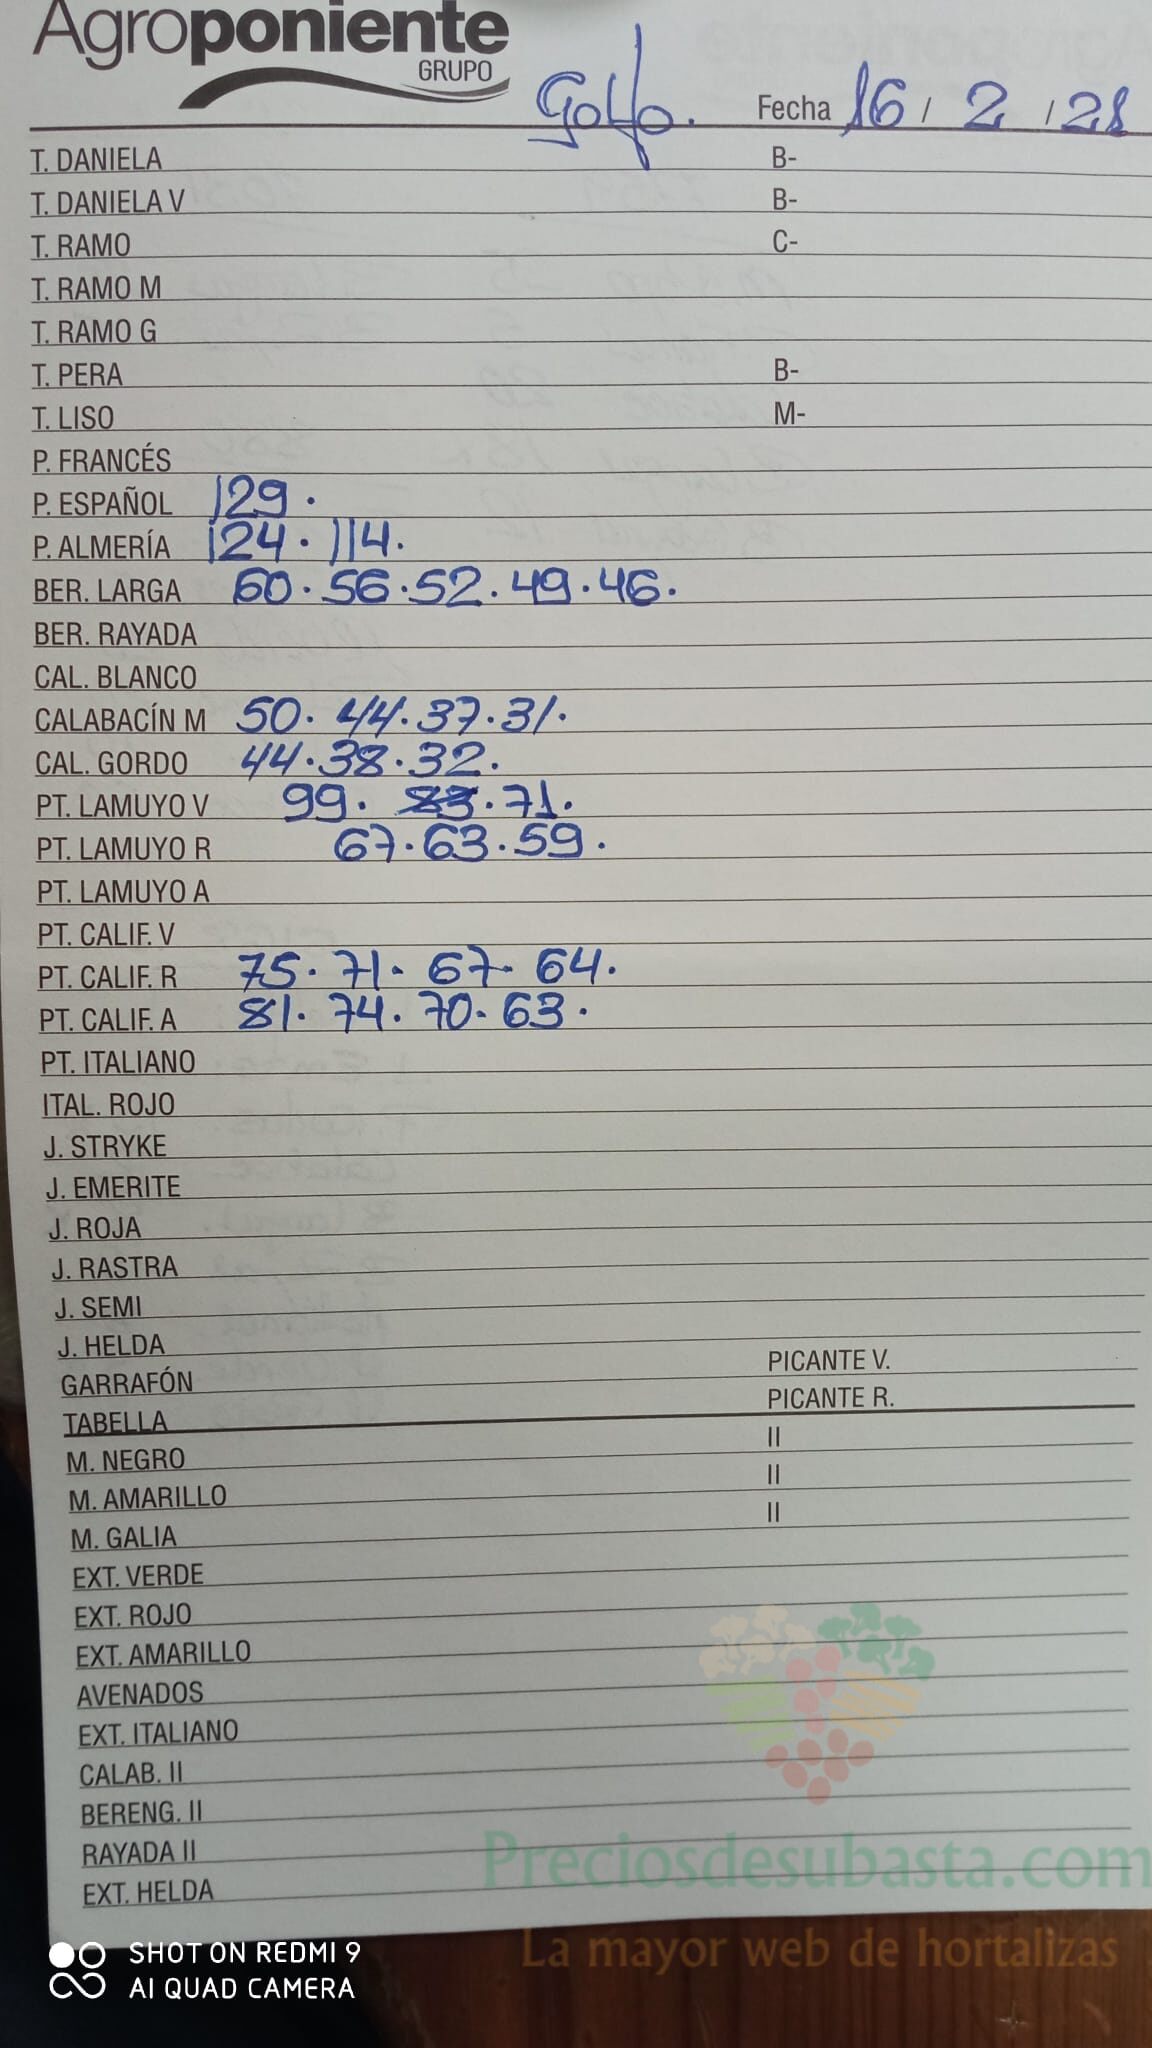 Agroponiente
GRUPO
Golfo. Fecha 16 / 2 / 21
T. DANIELA B-
T. DANIELA V B-
T. RAMO C-
T. RAMO M
T. RAMO G
T. PERA B-
T. LISO M-
P. FRANCÉS
P. ESPAÑOL 129.
P. ALMERÍA 124. 114.
BER. LARGA 60. 56. 52. 49. 46.
BER. RAYADA
CAL. BLANCO
CALABACÍN M 50. 44. 37. 31.
CAL. GORDO 44. 38. 32.
PT. LAMUYO V 99. 83. 71.
PT. LAMUYO R 67. 63. 59.
PT. LAMUYO A
PT. CALIF. V
PT. CALIF. R 75. 71. 67. 64.
PT. CALIF. A 81. 74. 70. 63.
PT. ITALIANO
ITAL. ROJO
J. STRYKE
J. EMERITE
J. ROJA
J. RASTRA
J. SEMI
J. HELDA
GARRAFÓN PICANTE V.
TABELLA PICANTE R.
M. NEGRO II
M. AMARILLO II
M. GALIA II
EXT. VERDE
EXT. ROJO
EXT. AMARILLO
AVENADOS
EXT. ITALIANO
CALAB. II
BERENG. II
RAYADA II
EXT. HELDA
Preciosdesubasta.com
La mayor web de hortalizas
SHOT ON REDMI 9
AI QUAD CAMERA